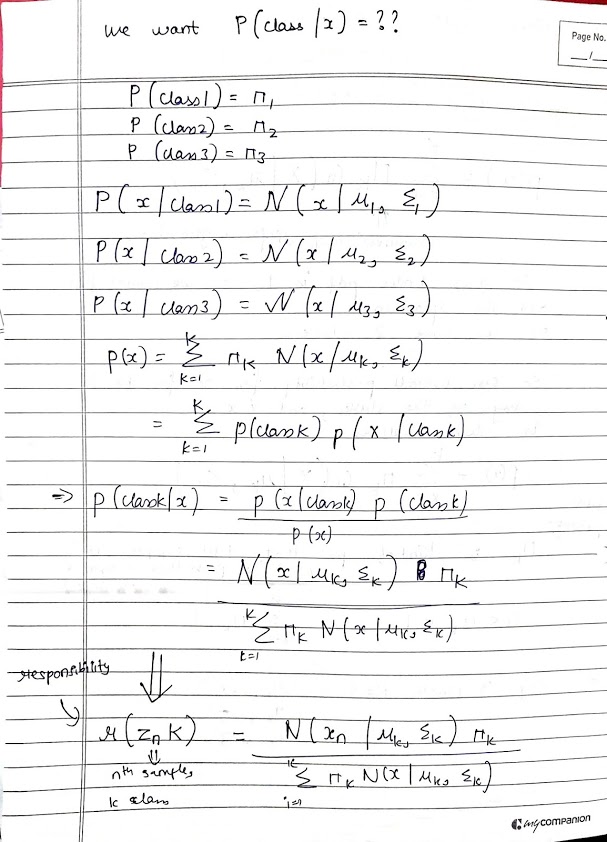 we want P(class/x) = ??
Page No.
P(class1) = π₁
P(class2) = π₂
P(class3) = π₃
P(x/class1) = N(x | μ₁, Σ₁)
P(x | class2) = N(x | μ₂, Σ₂)
P(x | class3) = N(x | μ₃, Σ₃)
p(x) = Σ_{k=1}^{K} π_K N(x/μ_K, Σ_K)
= Σ_{k=1}^{K} p(classk) p(x | classk)
=> p(classk/x) = p(x/classk) p(classk) / p(x)
= N(x | μ_K, Σ_K) π_K / Σ_{k=1}^{K} π_K N(x | μ_K, Σ_K)
responsibility ⇓
r(z_n K) = N(x_n | μ_K, Σ_K) π_K / Σ_{i=1}^{K} π_K N(x | μ_K, Σ_K)
⇓
nth samples,
k class
mycompanion